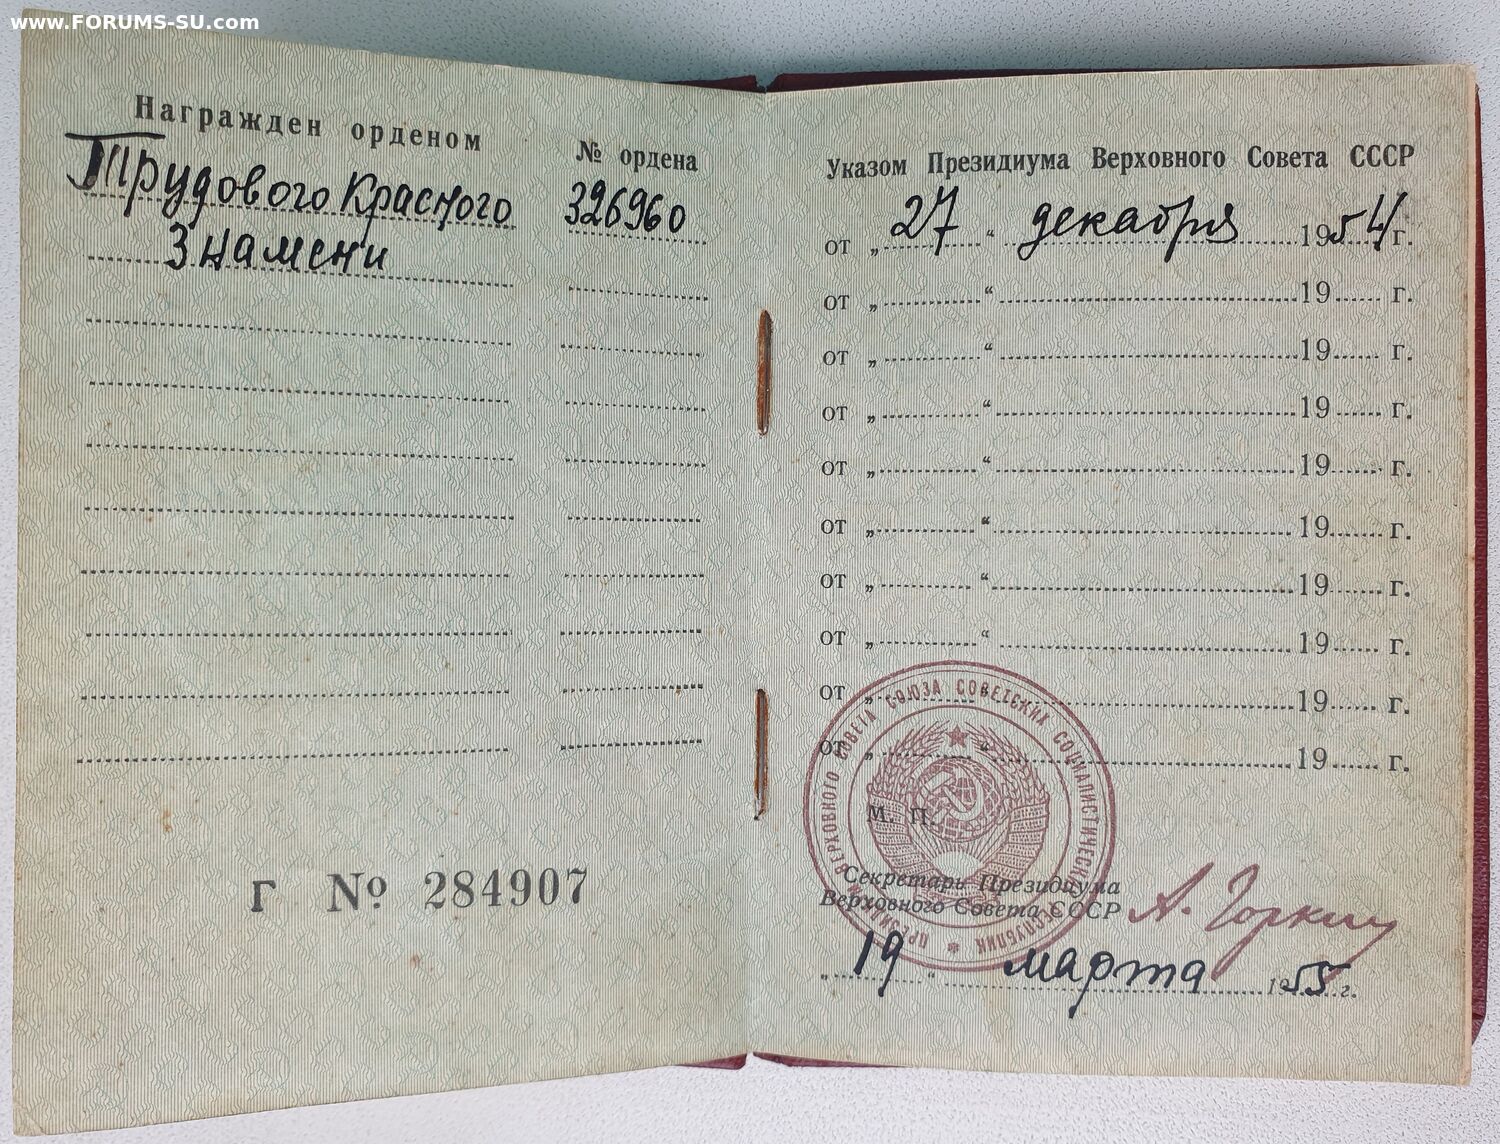 www.FORUMS-SU.com
Награжден орденом
№ ордена
Трудового Красного
326960
Знамени
Г № 284907
Указом Президиума Верховного Совета СССР
от „27“ декабря 1954 г.
от „ “ 19 г.
от „ “ 19 г.
от „ “ 19 г.
от „ “ 19 г.
от „ “ 19 г.
от „ “ 19 г.
от „ “ 19 г.
от „ “ 19 г.
от „ “ 19 г.
ПРЕЗИДИУМ ВЕРХОВНОГО СОВЕТА СОЮЗА СОВЕТСКИХ СОЦИАЛИСТИЧЕСКИХ РЕСПУБЛИК
М. П.
Секретарь Президиума
Верховного Совета СССР
А. Горкин
„19“ марта 1955 г.